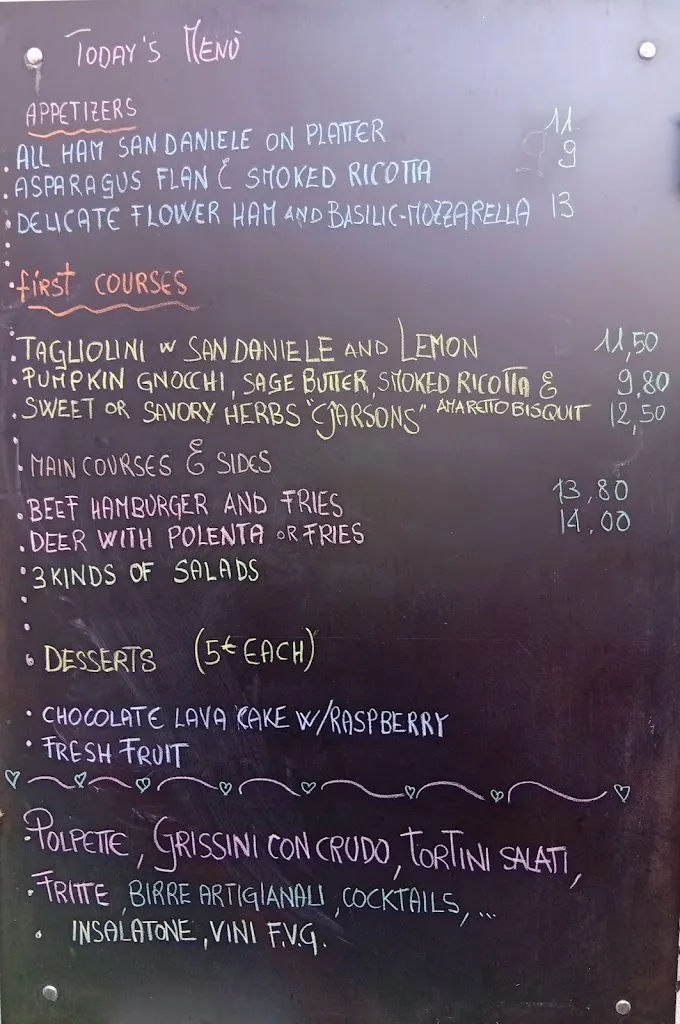 TODAY'S MENÙ
APPETIZERS
ALL HAM SAN DANIELE ON PLATTER 11
ASPARAGUS FLAN & SMOKED RICOTTA 9
DELICATE FLOWER HAM AND BASILIC-MOZZARELLA 13
FIRST COURSES
TAGLIOLINI W SAN DANIELE AND LEMON 11,50
PUMPKIN GNOCCHI, SAGE BUTTER, SMOKED RICOTTA & 9,80
SWEET OR SAVORY HERBS "CJARSONS" AMARETTO BISQUIT 12,50
MAIN COURSES & SIDES
BEEF HAMBURGER AND FRIES 13,80
DEER WITH POLENTA OR FRIES 14,00
3 KINDS OF SALADS
DESSERTS (5€ EACH)
CHOCOLATE LAVA CAKE W/RASPBERRY
FRESH FRUIT
POLPETTE, GRISSINI CON CRUDO, TORTINI SALATI,
FRITTE, BIRRE ARTIGIANALI, COCKTAILS, ...
INSALATONE, VINI F.V.G.